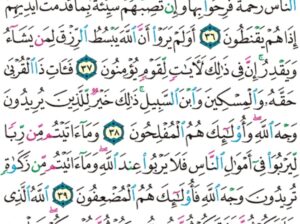 ٱلنَّاسَ رَحْمَةً فَرِحُوا۟ بِهَا وَإِن تُصِبْهُمْ سَيِّئَةٌۢ بِمَا قَدَّمَتْ أَيْدِيهِمْ
إِذَا هُمْ يَقْنَطُونَ ٣٦ أَوَلَمْ يَرَوْا۟ أَنَّ ٱللَّهَ يَبْسُطُ ٱلرِّزْقَ لِمَن يَشَآءُ
وَيَقْدِرُ إِنَّ فِى ذَٰلِكَ لَءَايَٰتٍ لِّقَوْمٍ يُؤْمِنُونَ ٣٧ فَـَٔاتِ ذَا ٱلْقُرْبَىٰ
حَقَّهُۥ وَٱلْمِسْكِينَ وَٱبْنَ ٱلسَّبِيلِ ذَٰلِكَ خَيْرٌ لِّلَّذِينَ يُرِيدُونَ
وَجْهَ ٱللَّهِ وَأُو۟لَٰٓئِكَ هُمُ ٱلْمُفْلِحُونَ ٣٨ وَمَآ ءَاتَيْتُم مِّن رِّبًا
لِّيَرْبُوَا۟ فِىٓ أَمْوَٰلِ ٱلنَّاسِ فَلَا يَرْبُوا۟ عِندَ ٱللَّهِ وَمَآ ءَاتَيْتُم مِّن زَكَوٰةٍ
تُرِيدُونَ وَجْهَ ٱللَّهِ فَأُو۟لَٰٓئِكَ هُمُ ٱلْمُضْعِفُونَ ٣٩ ٱللَّهُ ٱلَّذِى